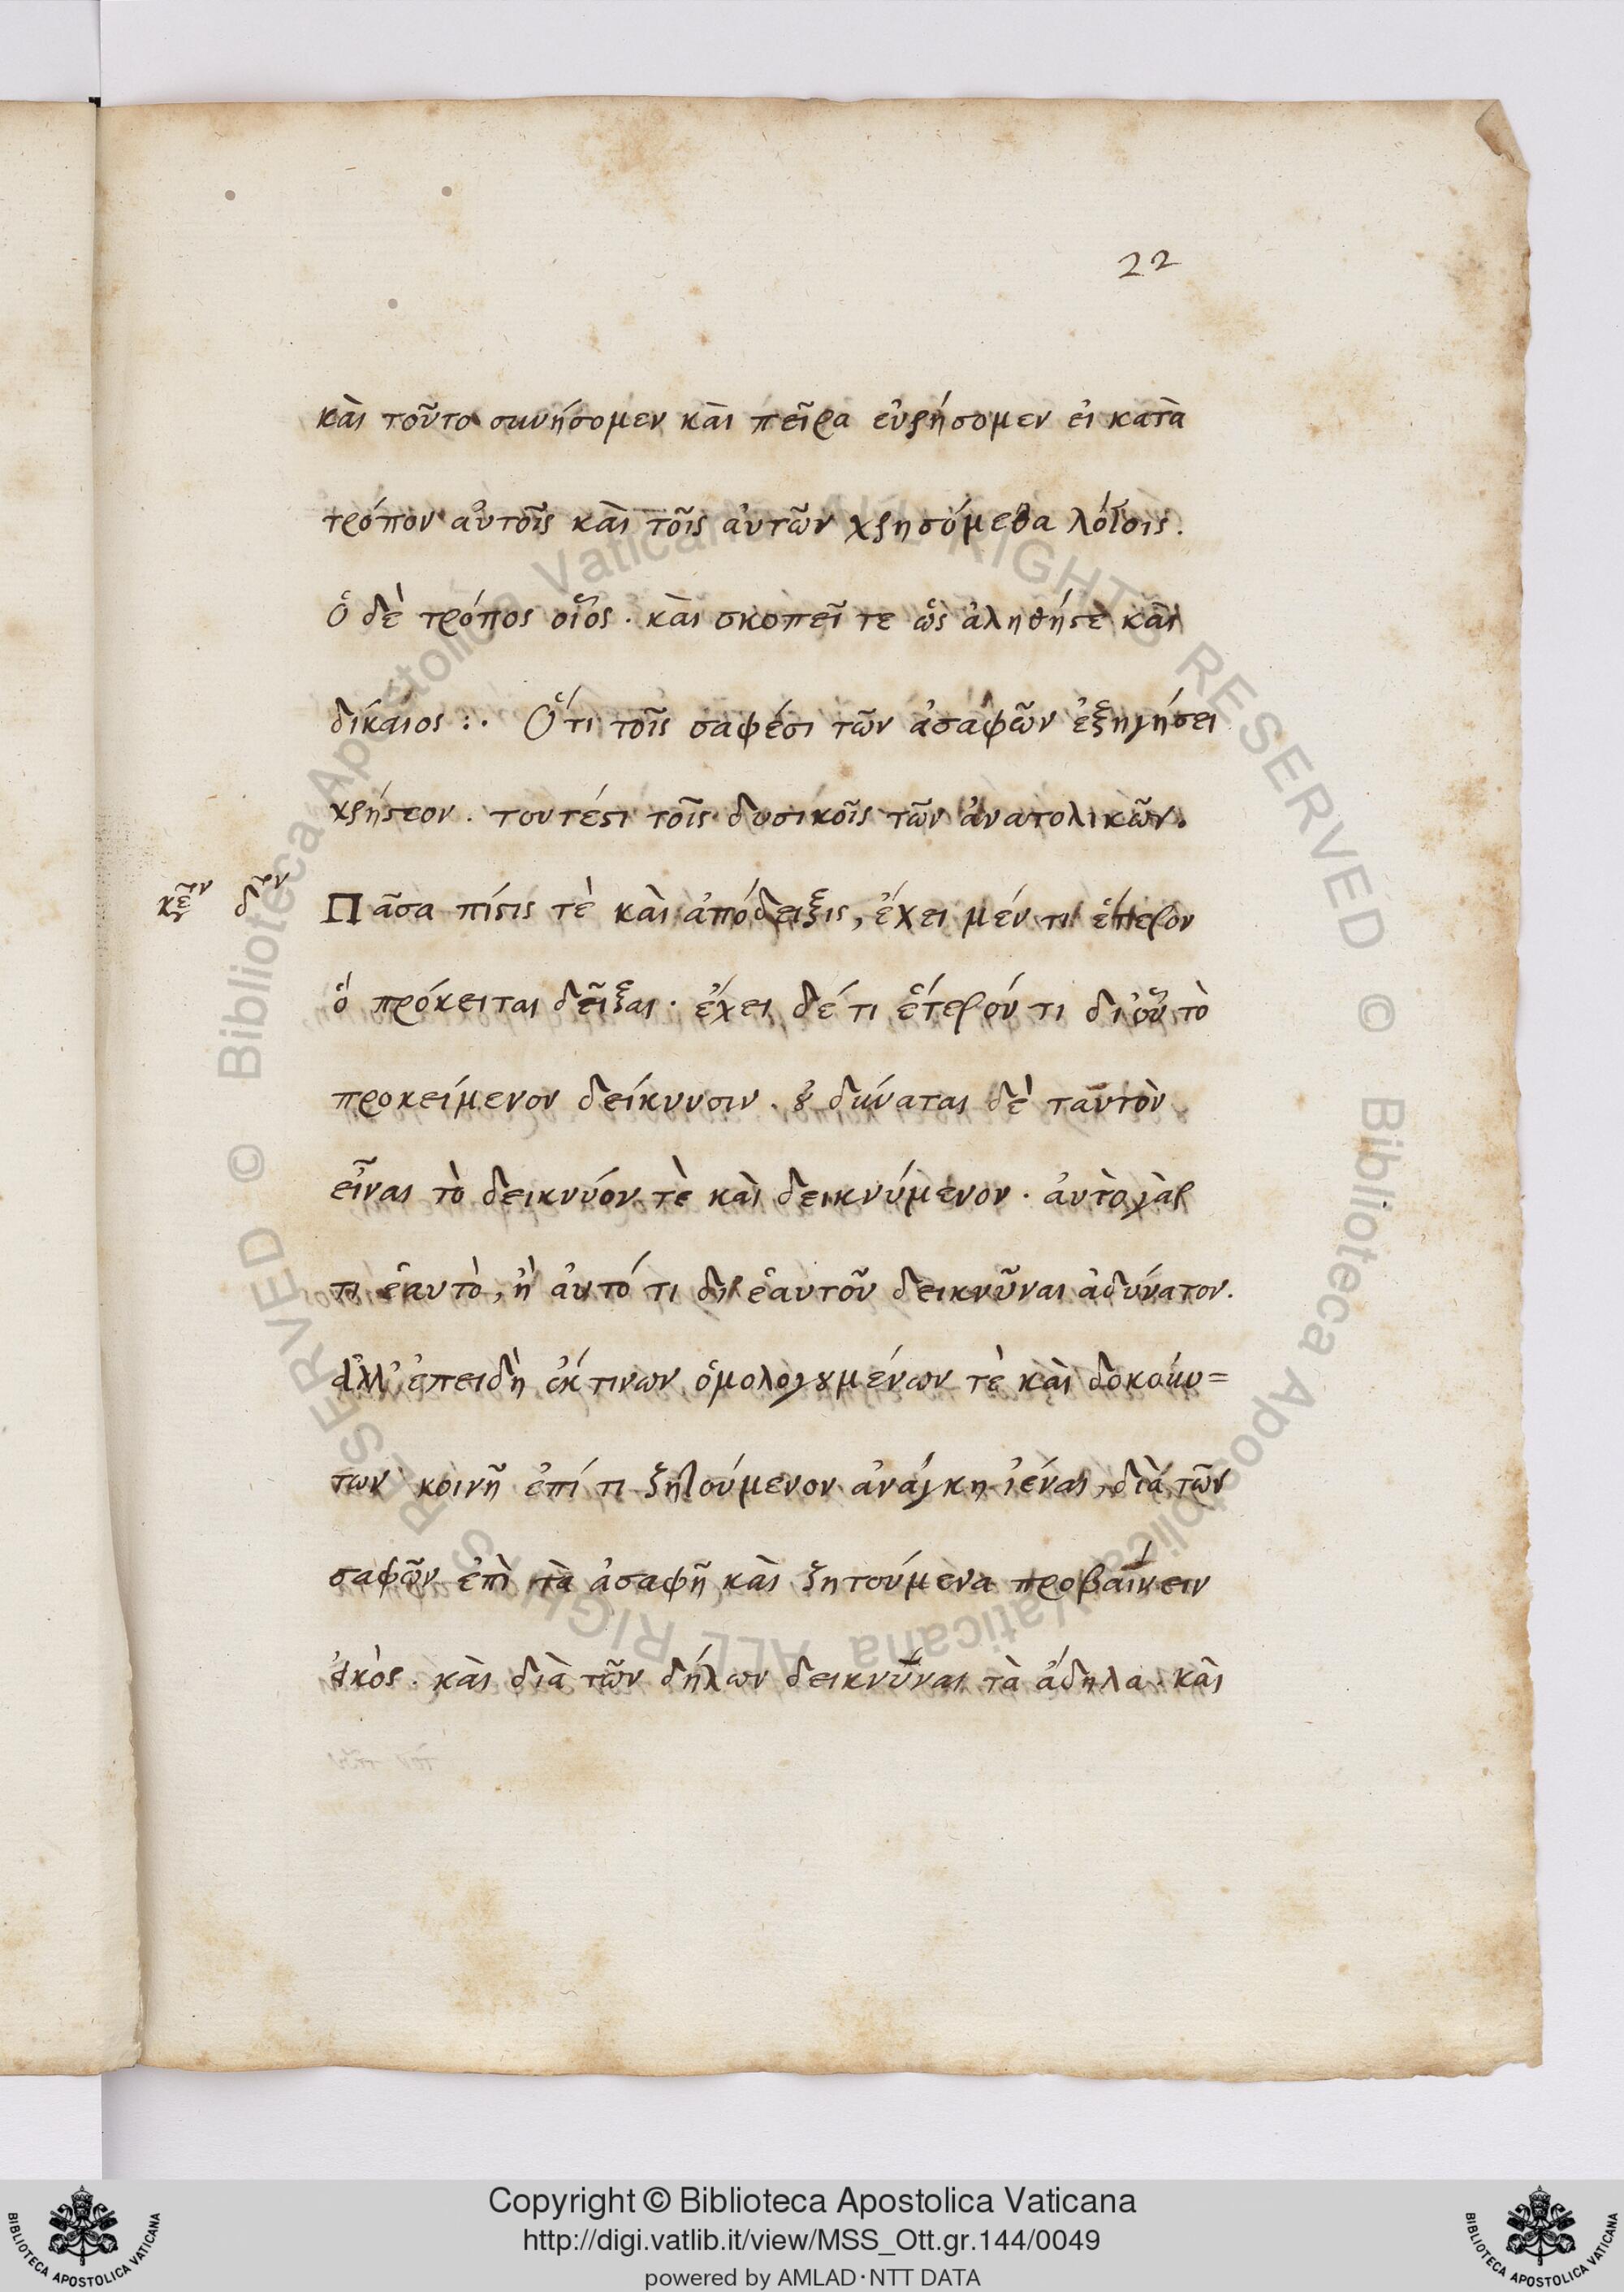 22
καὶ τοῦτο συνήσομεν καὶ πεῖρα εὑρήσομεν εἰ κατὰ
τρόπον αὐτοῖς καὶ τοῖς αὐτῶν χρησόμεθα λόγοις.
ὁ δὲ τρόπος οἷος. καὶ σκοπεῖ τε ὡς ἀληθής τὲ καὶ
δίκαιος :. Ὅτι τοῖς σαφέσι τῶν ἀσαφῶν ἐξηγήσει
χρήστεον. τουτέστι τοῖς δυσικοῖς τῶν ἀνατολικῶν.
Πᾶσα πίστις τὲ καὶ ἀπόδειξις, ἔχει μέν τι ἕτερον
ὃ πρόκειται δεῖξαι. ἔχει δέ τι ἕτερόν τι δι οὗ τὸ
προκείμενον δείκνυσιν. οὐ δύναται δὲ ταυτὸν
εἶναι τὸ δεικνύον τὲ καὶ δεικνύμενον. αὐτὸ γὰρ
τι ἑαυτὸ, ἢ αὐτό τι δι ἑαυτοῦ δεικνῦναι ἀδύνατον.
ἀλλ' ἐπειδὴ ἐκ τινων ὁμολογουμένων τὲ καὶ δοκούν=
των κοινῇ ἐπί τι ζητούμενον ἀνάγκη ἰέναι, διὰ τῶν
σαφῶν ἐπὶ τὰ ἀσαφῆ καὶ ζητούμενα προβαίνειν
εἰκός. καὶ διὰ τῶν δήλων δεικνῦναι τὰ ἄδηλα. καὶ
© Biblioteca Apostolica Vaticana ALL RIGHTS RESERVED © Biblioteca Apostolica Vaticana ALL RIGHTS RESERVED
Copyright © Biblioteca Apostolica Vaticana
http://digi.vatlib.it/view/MSS_Ott.gr.144/0049
powered by AMLAD·NTT DATA
BIBLIOTECA APOSTOLICA VATICANA
BIBLIOTECA APOSTOLICA VATICANA